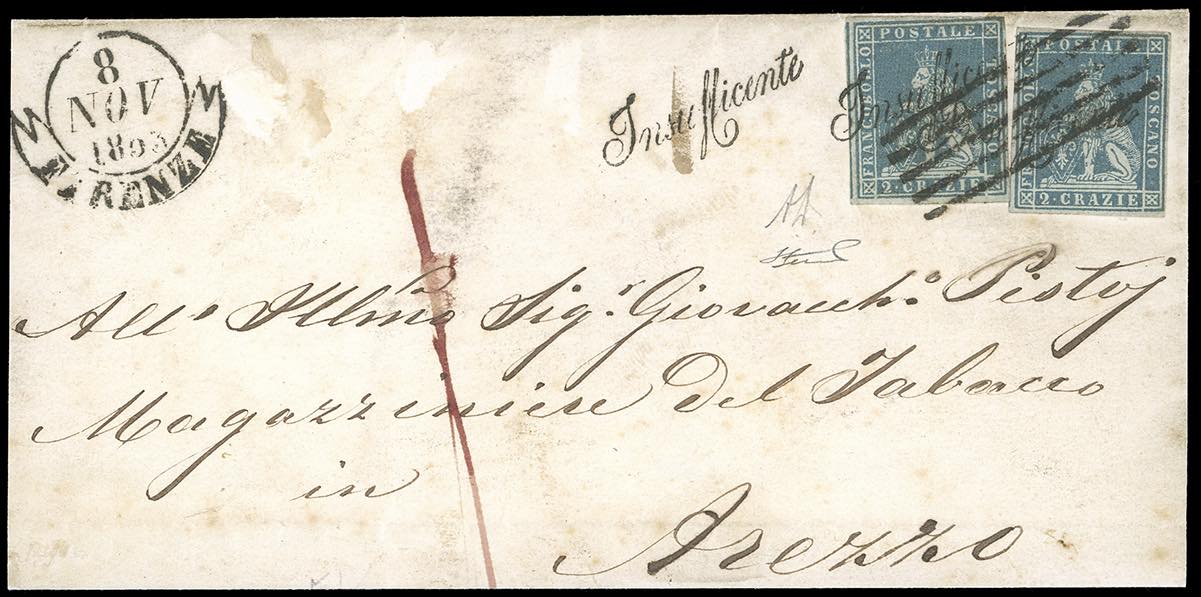 8
NOV
1853
FIRENZE
Insufficente
Insufficente
FRANCOBOLLO POSTALE TOSCANO
2 • CRAZIE
FRANCOBOLLO POSTALE TOSCANO
2 • CRAZIE
All'o Illmo Sig.r Giovacch.o Pistoj
Magazziniere del Tabacco
in
Arezzo